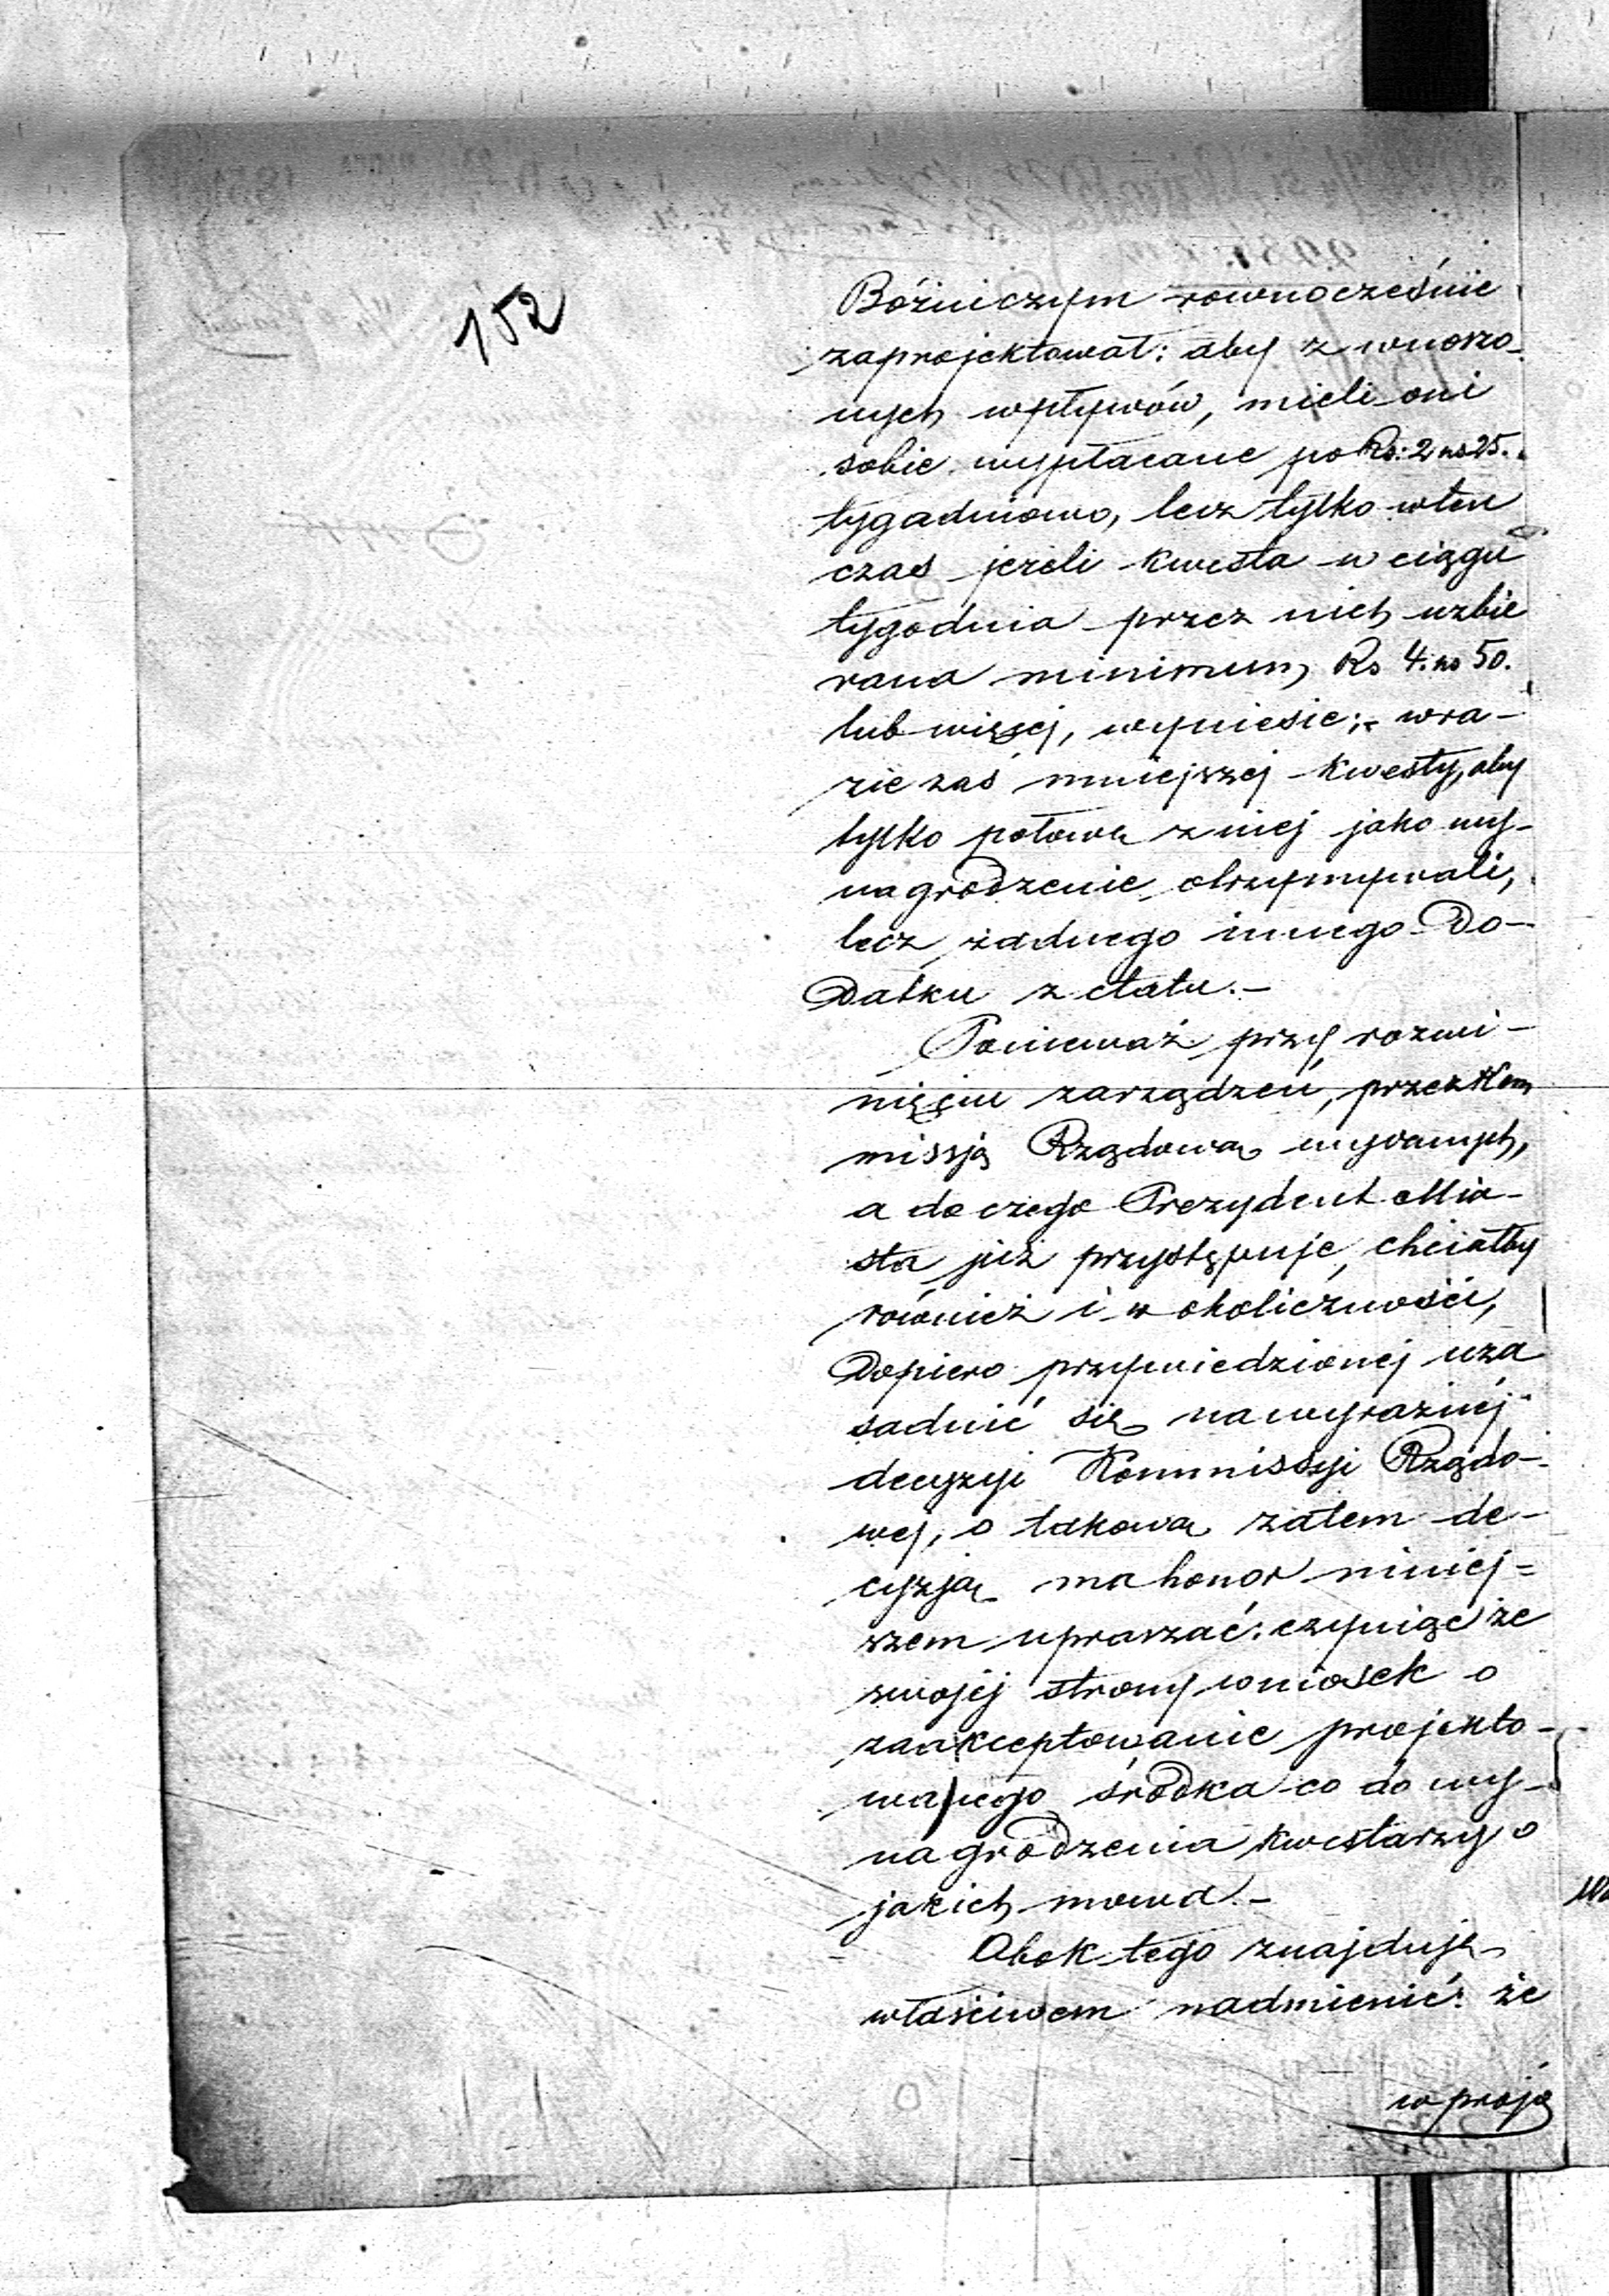 152
Bóźniczym rownocześnie
zaprojektował: aby z wnoszo-
nych wpływów, mieli oni
sobie wypłacane po Rs: 2 ko 25.
tygodniowo, lecz tylko wten
czas jeżeli kwesta w ciągu
tygodnia przez nich uzbie
rana minimum, Rs 4. ko 50.
lub więcej, wyniesie; wra-
zie zaś mniejszej kwesty, aby
tylko połowę z niej jako wy-
nagrodzenie otrzymywali,
lecz żadnego innego do-
datku z etatu.-
Ponieważ przy rozwi-
nięciu zarządzeń, przez Kom
missją Rządową wydanych,
a do czego Prezydent Mia-
sta już przystępuje, chciałby
również i w okoliczności,
dopiero przywiedzionej uza
sadnić się na wyraźnéj
decyzyi Kommissyi Rządo-
wej, o takową zatem de-
cyzją ma honor niniej=
szem upraszać: czyniąc ze
swojej strony wniosek o
zaakceptowanie projekto-
wanego środka co do wy-
nagrodzenia kwestarzy o
jakich mowa.-
Obok tego znajduję
właściwem nadmienić: że
w proje